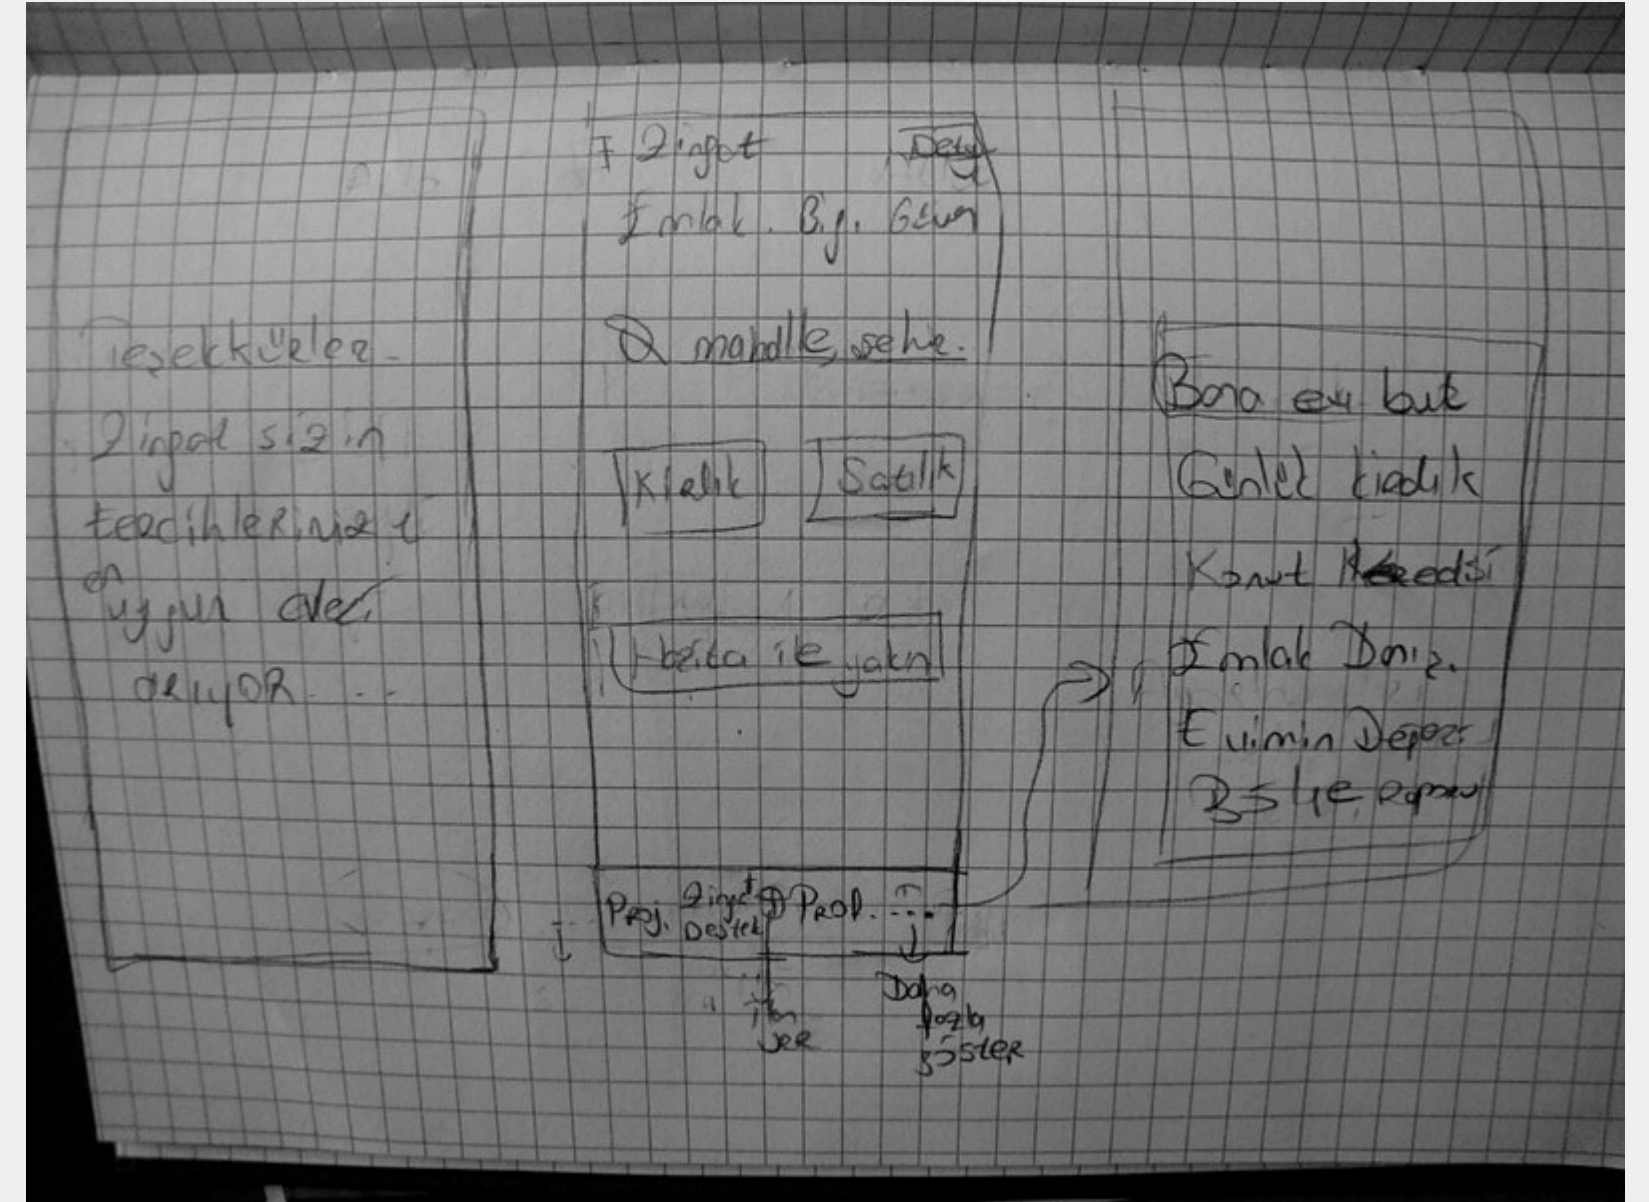 Teşekküler
Zingat sizin
tercihlerinizi
en
uygun evleri
arıyor...
Zingat
Emlak. Bg. Güven
mahalle, şehir.
Kiralık
Satılık
Harita ile yakın
Proj.
Zingat
Destek
Prof. ...
İlan
ver
Daha
fazla
göster
Bana ev bul
Günlük kiralık
Konut Kredisi
Emlak Danış.
Evimin Değeri
Bölge Raporu